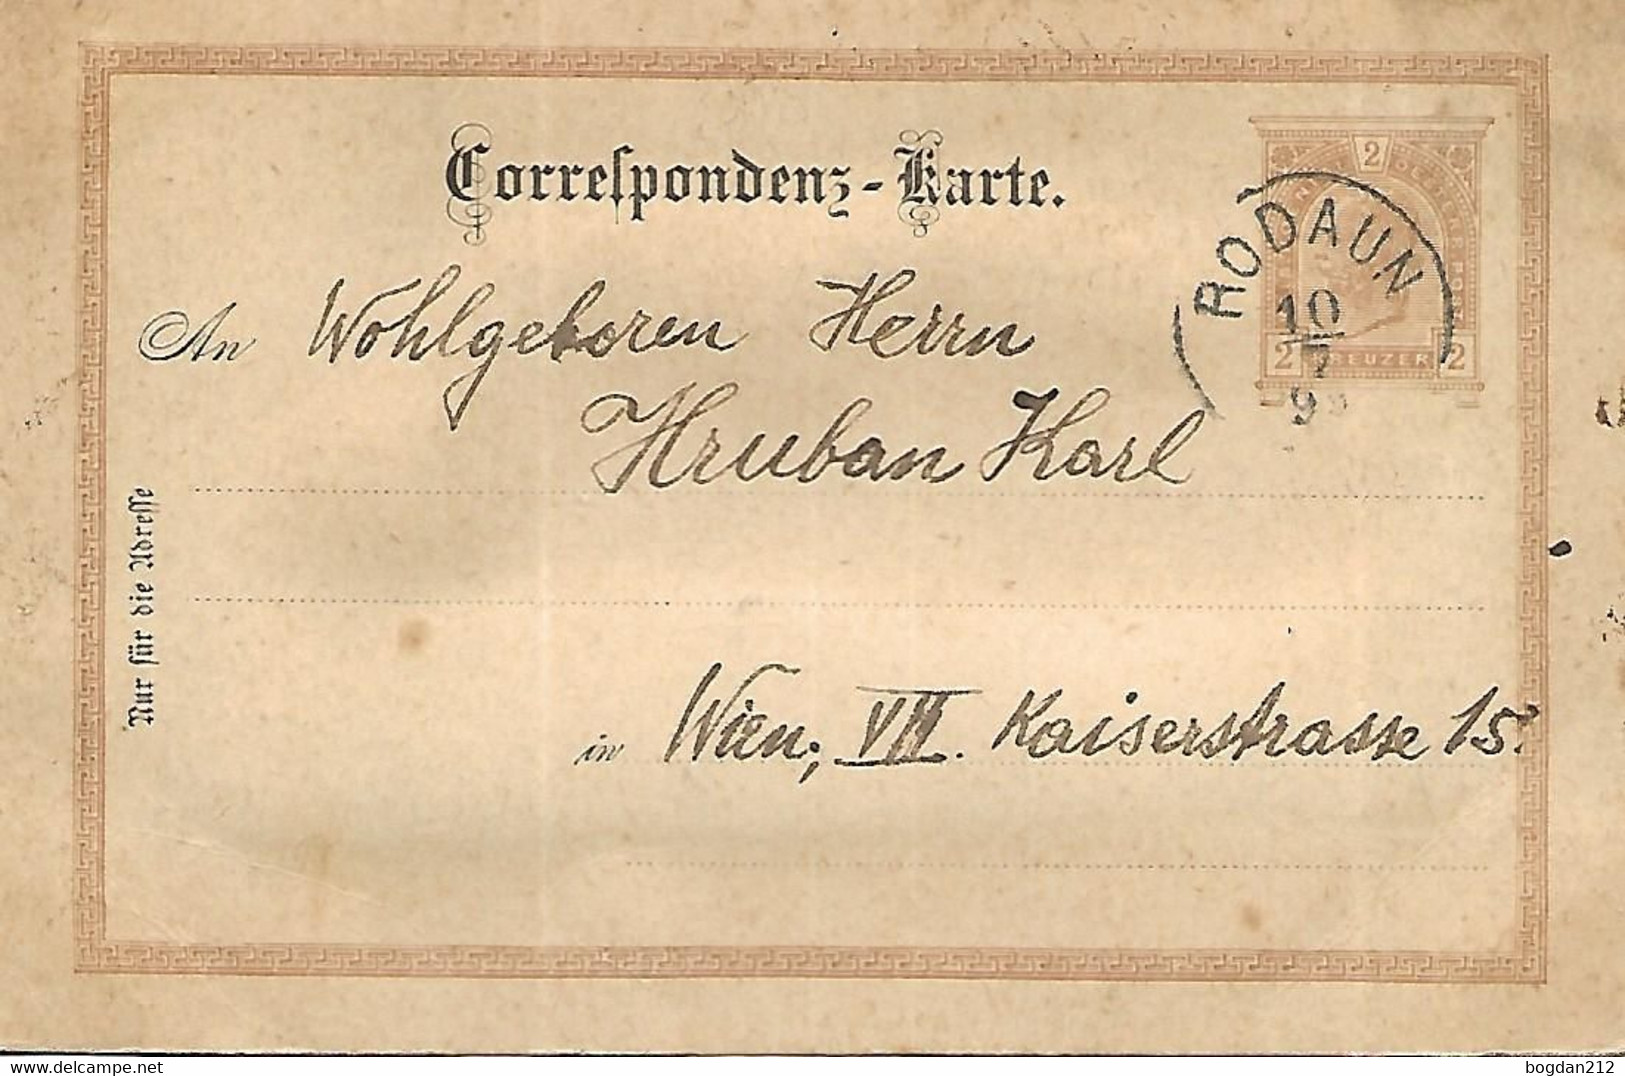 Correspondenz-Karte.
2
2 KREUZER 2
RODAUN
10
7
9
An Wohlgeboren Herrn
Hruban Karl
Nur für die Adresse
in Wien, VII. Kaiserstrasse 15.
www.delcampe.net
bogdan212